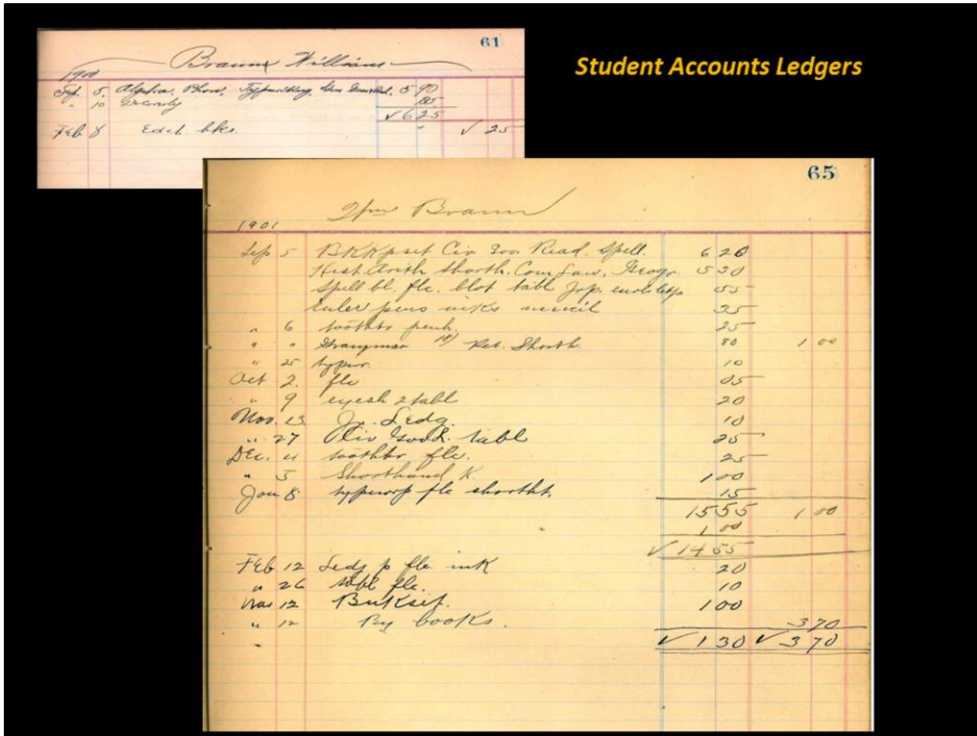 Student Accounts Ledgers
61
Braun William
1900
Sep. 5, Algebra, Phon, Typewriting, 5 90
" 10 85
✓ 6 25
Feb 8 Exch. bks. " ✓ 25
65
Wm Braun
1901
Sep 5 Bkkpset Civ Gov. Read. Spell. 6 20
Hist. Arith Shorth. Com Law. Geogr. 5 30
Spell bl. flc. blot tabl 55
ruler pens inks 35
" 6 toothbr penh. 25
" " Grammar Ret. Shorth. 80 1 00
" 25 typwr. 10
Oct 2. flc 05
" 9 eyesh 2 tabl 20
Nov. 13 Jr. Ledg. 10
" 27 tabl 25
Dec. 4 toothbr flc. 25
" 5 Shorthand K 1 00
Jan 8 flc shortht. 15
15 55 1 00
1 00
✓ 14 55
Feb 12 Ledg p flc ink 20
" 26 tabl flc. 10
Mar 12 1 00
" 12 By books. 3 70
" ✓ 1 30 ✓ 3 70